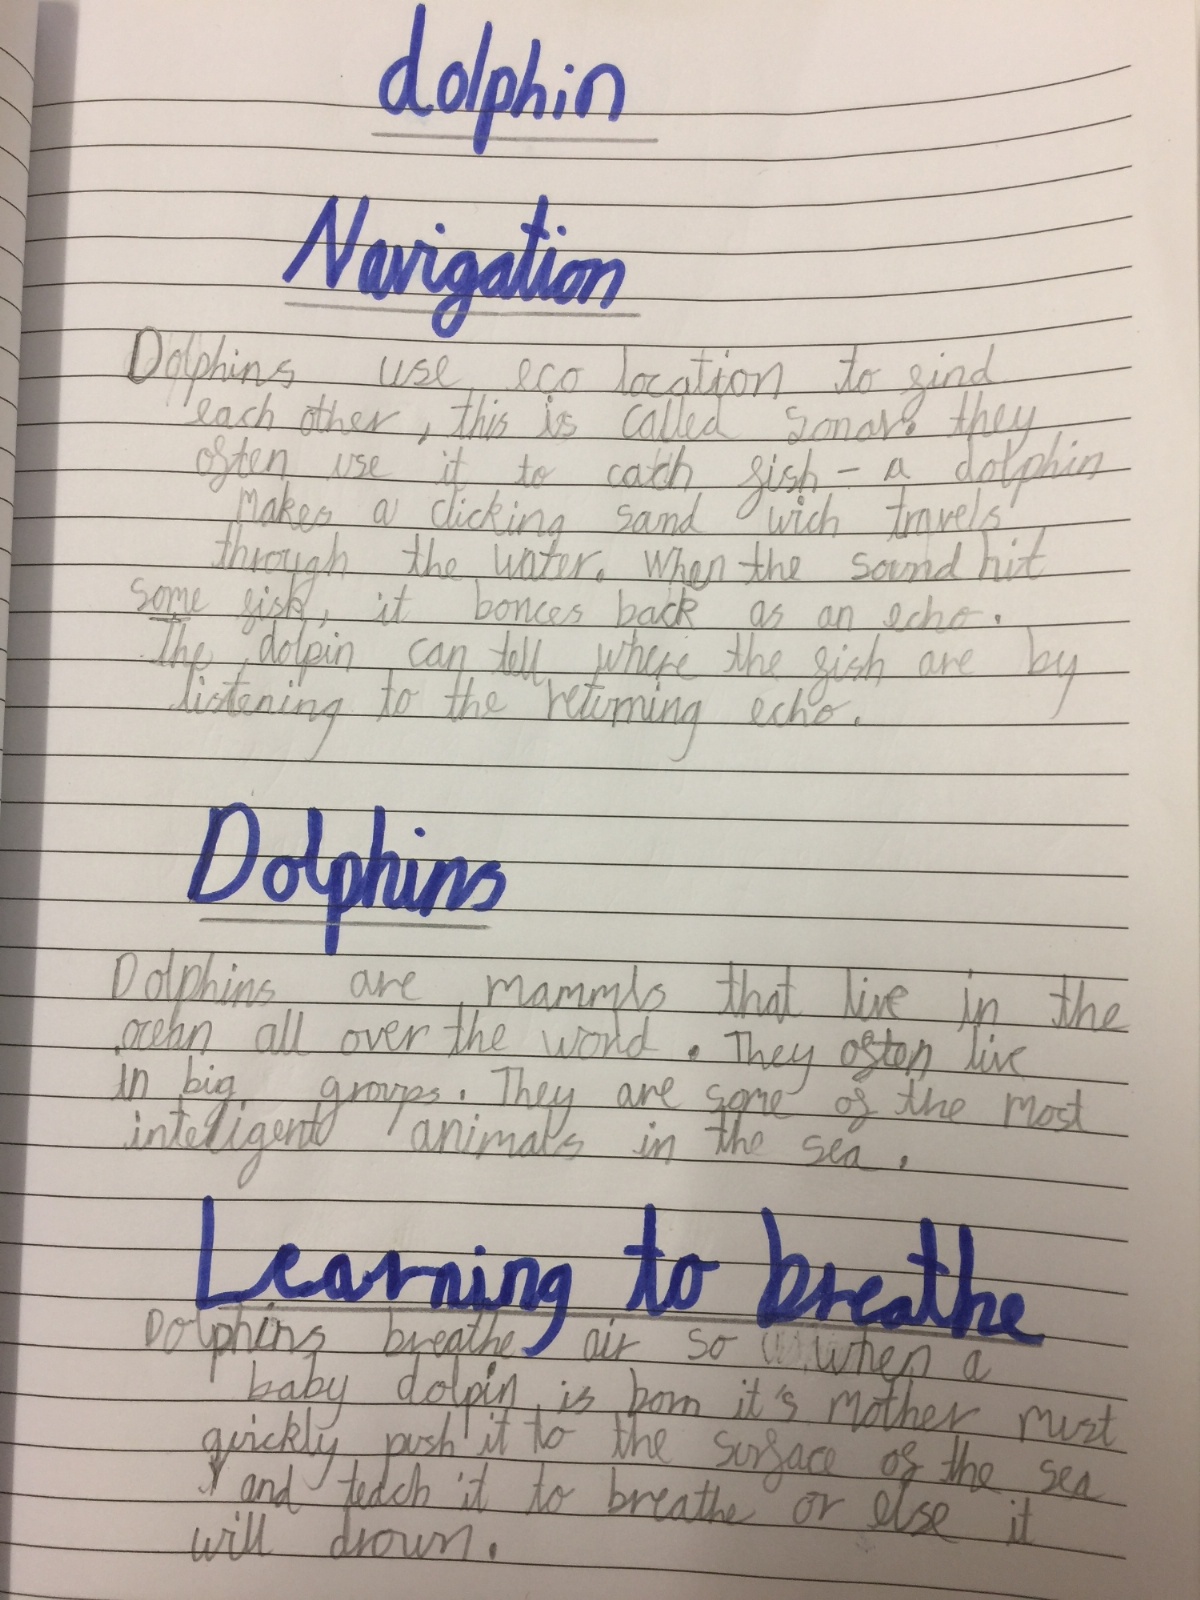 dolphin
Navigation
Dolphins use eco location to find
each other, this is called sonar. they
often use it to catch fish - a dolphin
makes a clicking sand wich travels
through the water. When the sound hit
some fish, it bonces back as an echo.
The dolpin can tell where the fish are by
listening to the returning echo.
Dolphins
Dolphins are mammls that live in the
ocean all over the world. They often live
in big groups. They are some of the most
intelligent animals in the sea.
Learning to breathe
Dolphins breathe air so when a
baby dolpin is born it's mother must
quickly push it to the surface of the sea
and teach it to breathe or else it
will drown.